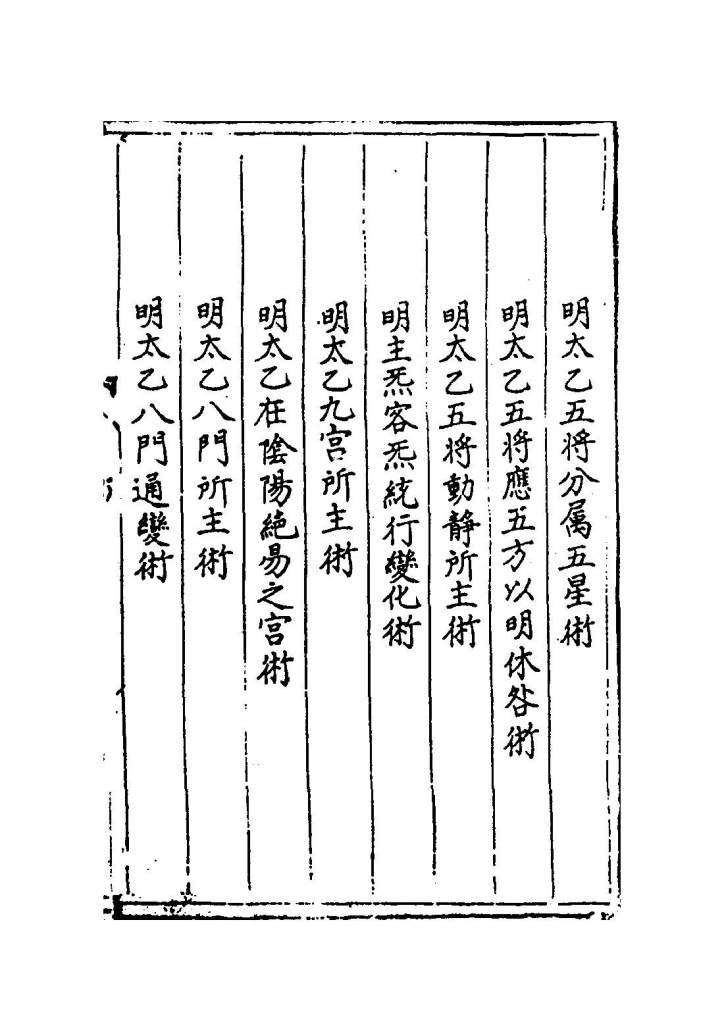 明太乙五将分属五星術
明太乙五将應五方以明休咎術
明太乙五将動静所主術
明主炁客炁統行變化術
明太乙九宮所主術
明太乙在陰陽絶易之宮術
明太乙八門所主術
明太乙八門通變術